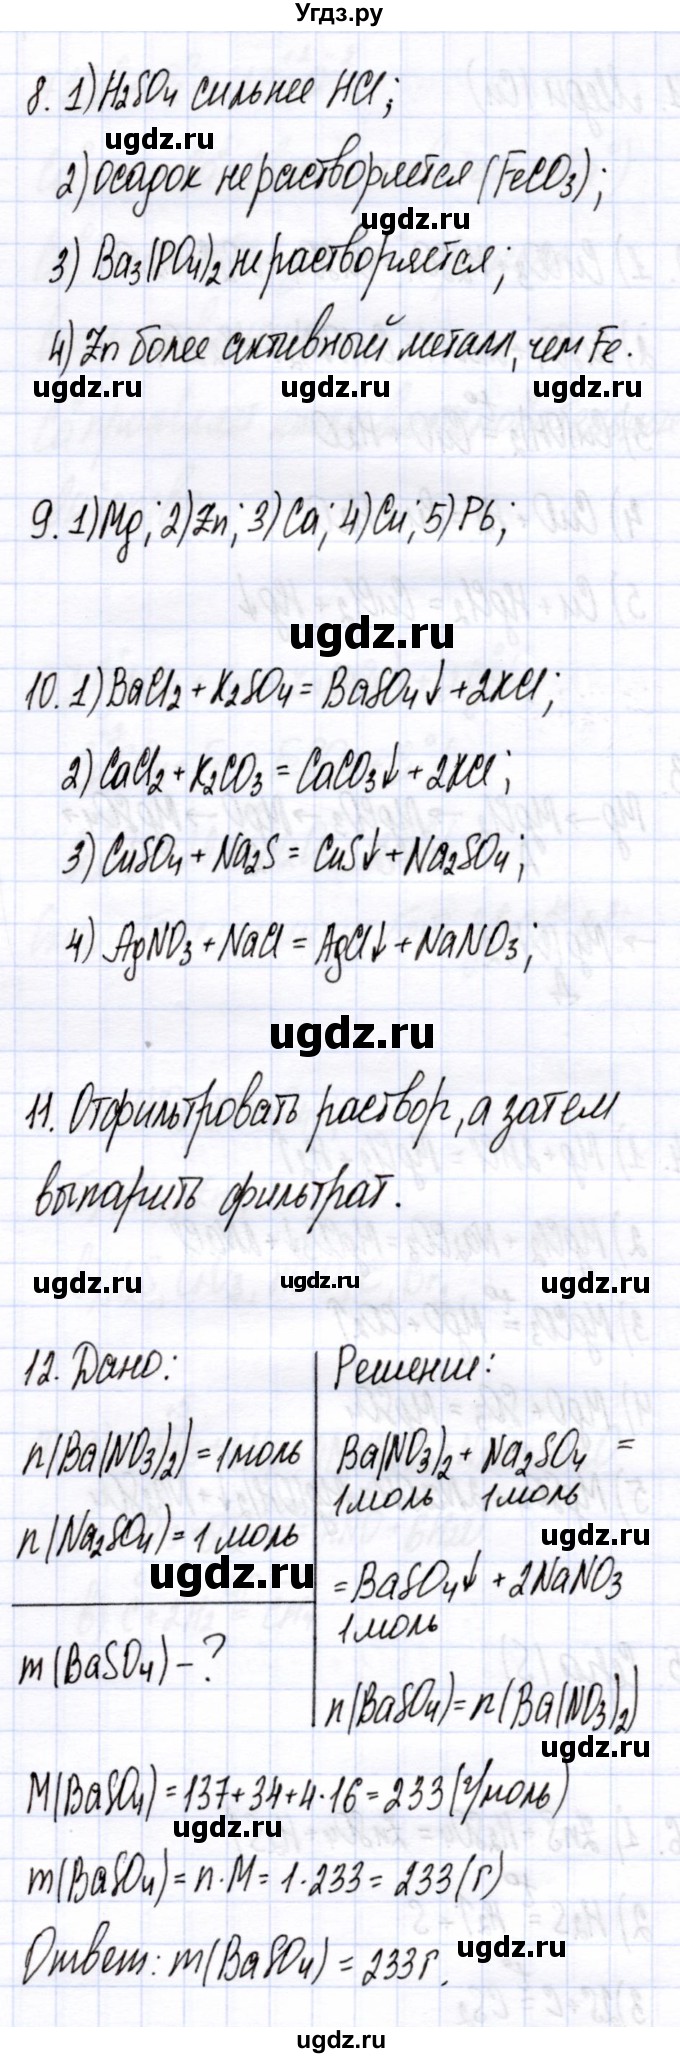 Угдз.ру
8. 1) H₂SO₄ сильнее HCl;
ugdz.ru
2) осадок не растворяется (FeCO₃);
ugdz.ru
3) Ba₃(PO₄)₂ не растворяется;
4) Zn более активный металл, чем Fe.
ugdz.ru ugdz.ru ugdz.ru
9. 1) Mg; 2) Zn; 3) Ca; 4) Cu; 5) Pb;
ugdz.ru
10. 1) BaCl₂ + K₂SO₄ = BaSO₄↓ + 2KCl;
2) CaCl₂ + K₂CO₃ = CaCO₃↓ + 2KCl;
3) CuSO₄ + Na₂S = CuS↓ + Na₂SO₄;
4) AgNO₃ + NaCl = AgCl↓ + NaNO₃;
ugdz.ru
11. Отфильтровать раствор, а затем
выпарить фильтрат.
ugdz.ru ugdz.ru ugdz.ru
12. Дано:
n(Ba(NO₃)₂) = 1 моль
n(Na₂SO₄) = 1 моль
ugdz.ru
m(BaSO₄) - ?
Решение:
Ba(NO₃)₂ + Na₂SO₄ =
1 моль 1 моль
ugdz.ru
= BaSO₄↓ + 2NaNO₃
1 моль
n(BaSO₄) = n(Ba(NO₃)₂)
ugdz.ru
M(BaSO₄) = 137 + 34 + 4 · 16 = 233 (г/моль)
ugdz.ru
m(BaSO₄) = n · M = 1 · 233 = 233 (г)
Ответ: m(BaSO₄) = 233 г.
ugdz.ru
ugdz.ru